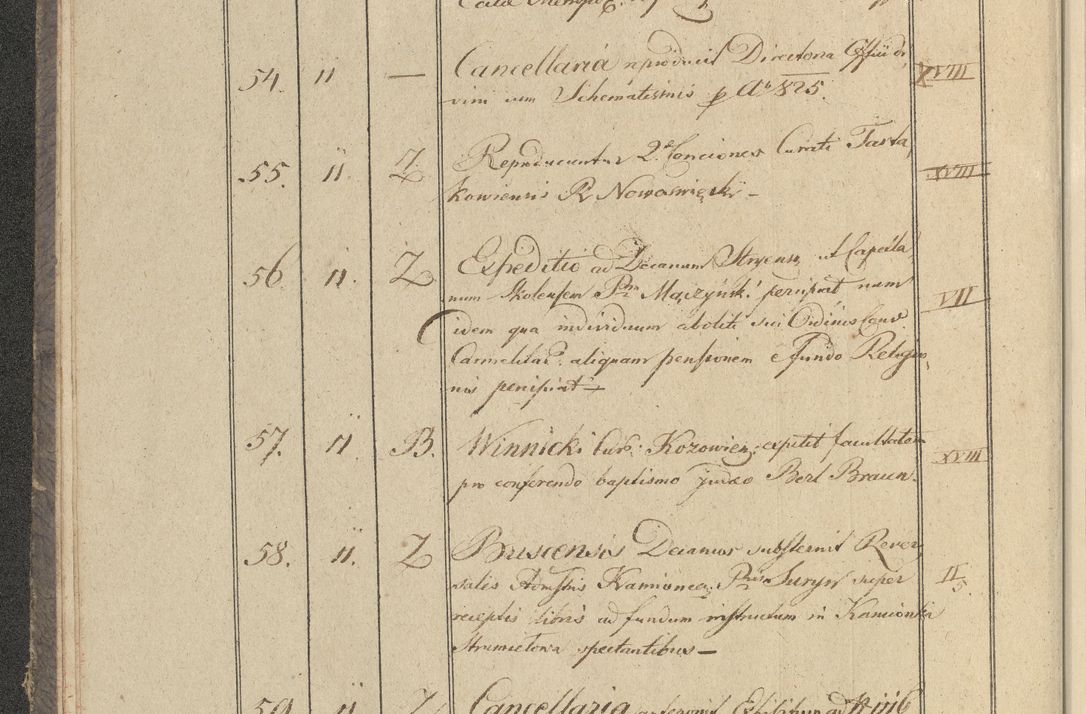 54. 11 — Cancellaria reproducit Directoria Officii di XVIII
vini cum Schematismis p Ao 825.
55. 11 Z Reproducuntur 2. Conciones Curati Tarta
kowiensis R Nowoswięcki — XVIII
56 11. Z Expeditio ad Decanum Stryens. et Capella
num Skolensem Prem Mączyński percipiat num VII
idem qua individuum aboliti sui Ordinis Conv.
Carmelitar. aliquam pensionem e fundo Religio
nis percipiat —
57. 11 B. Winnicki Cur. Kozowien. expetit facultatem
pro conferendo baptismo judaeo Berl Braun. XVIII
58. 11. Z Buscensis Decanus substernit Rever
salis Admstris Kamionea. Pris Suryn super II/5
receptis libris ad fundum instructum in Kamionka
Strumiłowa spectantibus —
59 11 Z Cancellaria ad